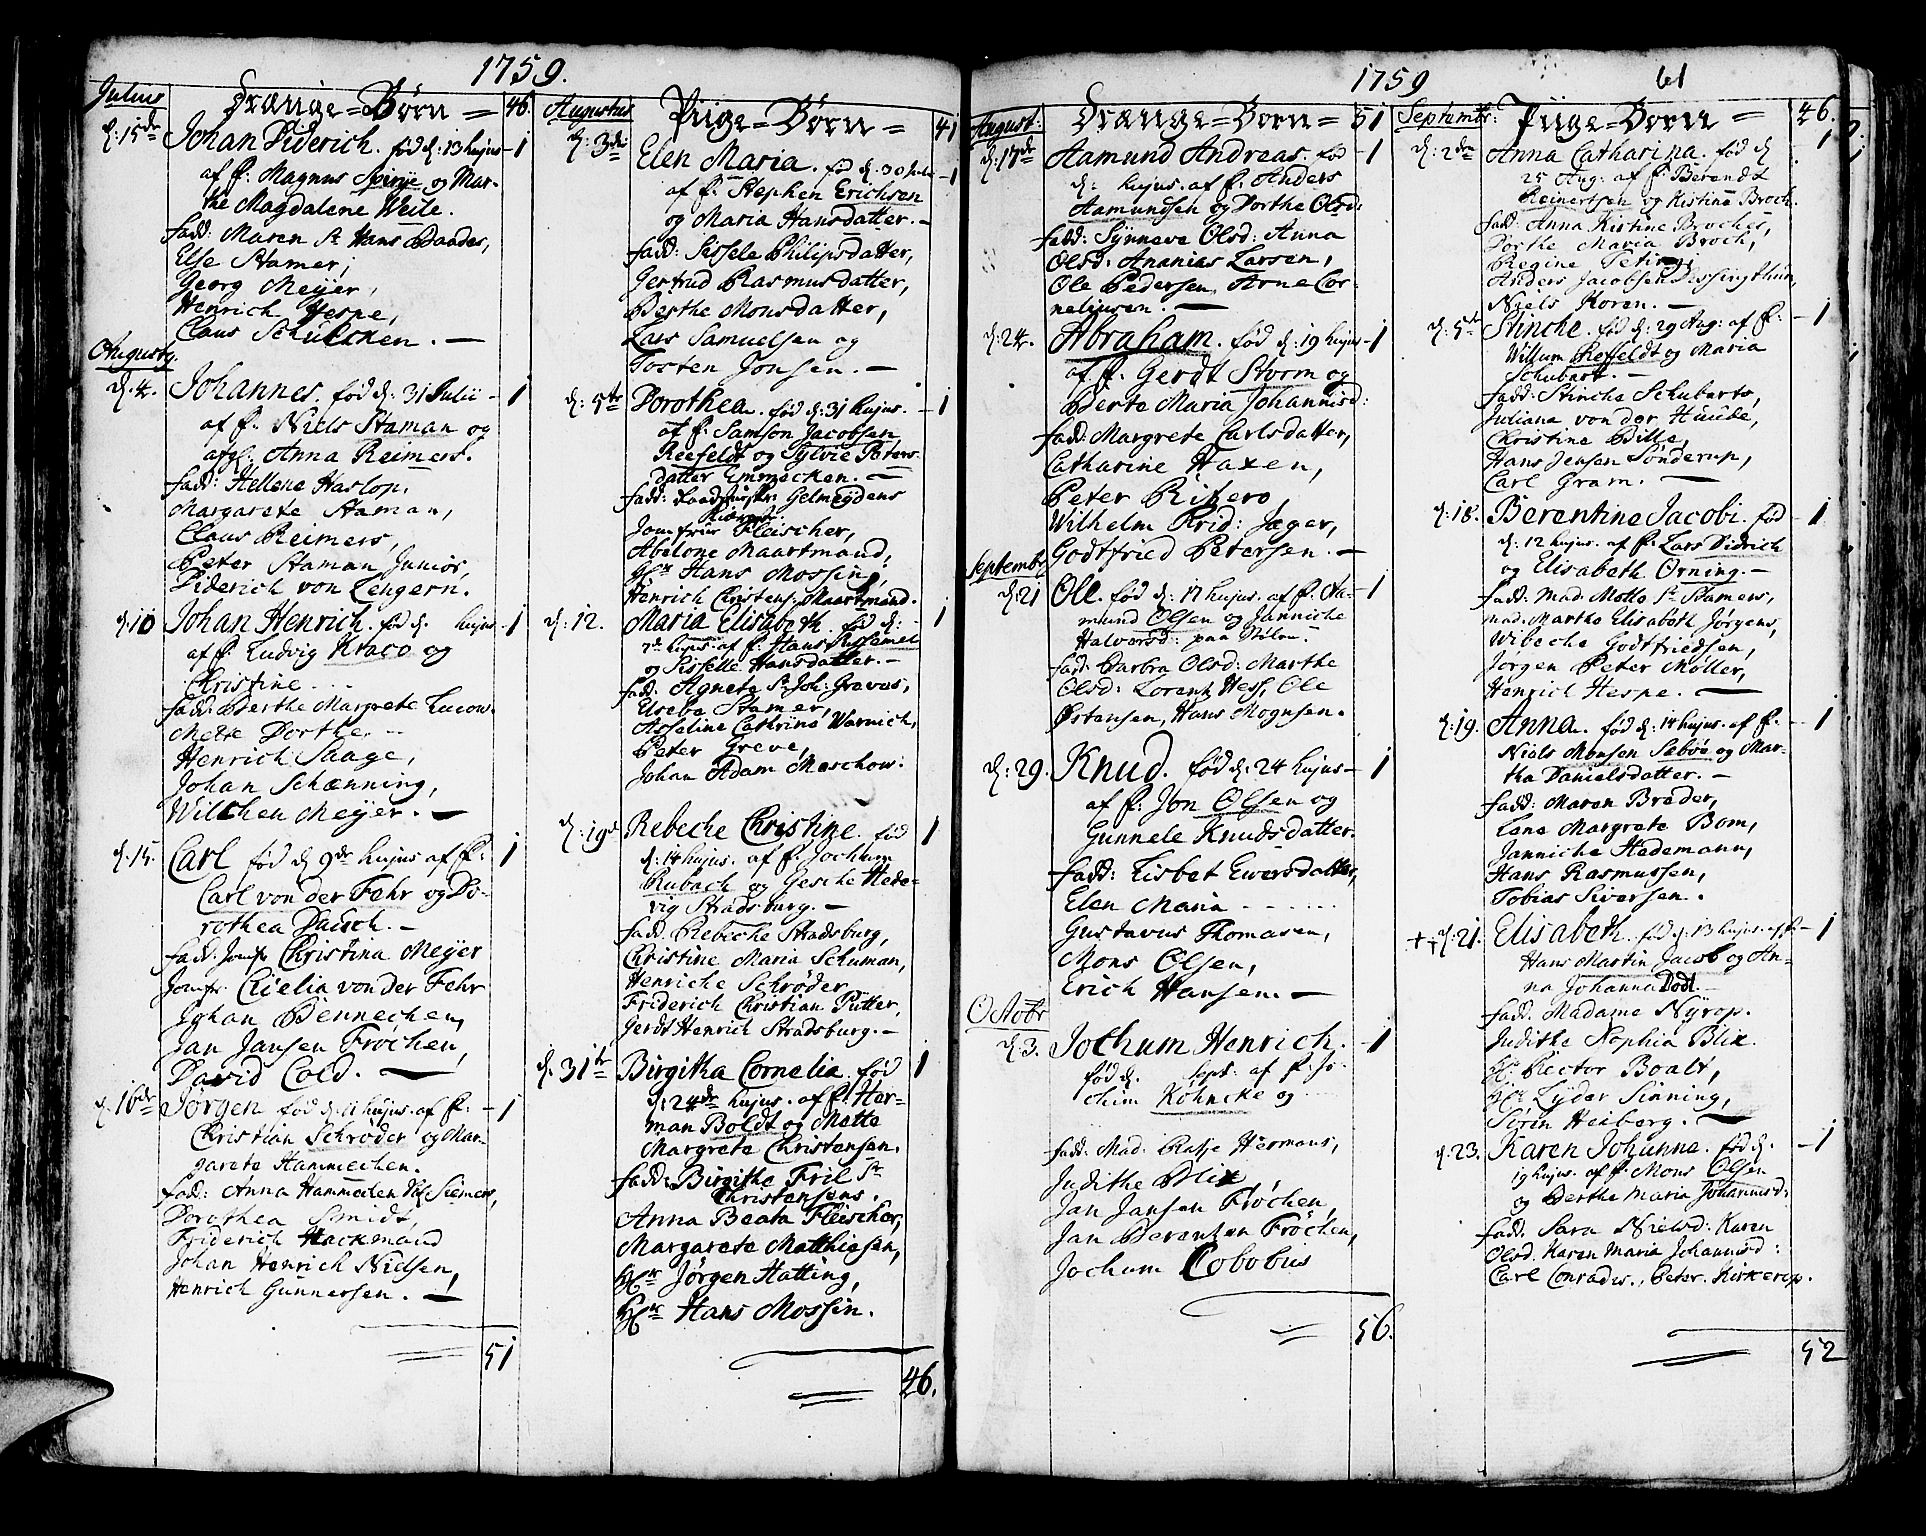 1759.
Julius
Drænge=Børn = 46.
d: 15de Johan Diderich. fød d: 13 hujus - 1
af f: Magnus Spinje og Mar-
the Magdalene Weile.
fadd: Maren Sr Hans Baades,
Else Stamer,
Georg Meÿer,
Henrich Hespe,
Claus Schulcken. —
Augusty.
d: 4. Johannes. fød d: 31 Julii - 1
af f: Niels Staman og
afgl: Anna Reimers.
fadd: Hellene Haslop,
Margarete Staman,
Claus Reimers,
Peter Staman Junior,
Diderich von Lengern.
d: 10 Johan Henrich. fød d. hujus - 1
af f: Ludvig Kraco og
Christine ...
fadd: Berthe Margrete Lucow.
Mette Dorthe ..
Henrich Saage,
Johan Schænning,
Wilchen Meÿer. —
d: 15. Carl fød d 9de hujus af f: 1
Carl von der Fehr og Do-
rothea Dausch. —
fadd: Jomfr Christina Meÿer
Jomfr: Cicelia von der Fehr
Johan Bennechen,
Jan Jansen Frochen,
David Cold. —
d. 16de Jørgen fød d: 11 hujus. af f: - 1
Christian Schrøder og Mar-
garete Hammechen.
fadd: Anna Hammechen Siemers,
Dorothea Smidt,
Friderich Hackmand
Johan Henrich Nielsen,
Henrich Gunnersen. —
51
Augustus
Piige=Børn = 41
d: 3de Elen Maria. fød d. 30 Juli - 1
af f: Stephen Erichsen
og Maria Hansdatter. —
fadd: Sissele Philipsdatter,
Gertrud Rasmusdatter,
Berthe Monsdatter,
Lars Samuelsen og
Tosten Jonsen. —
d: 5te Dorothea. fød d: 31 hujus. - 1
af f: Samson Jacobsen
Reefeldt og Sylvie Peters
datter Emmecken. —
fadd: Raadhustr: Gelmeydens
Jomfrue Fleischer,
Abelone Maartmand,
Hr Hans Mossin,
Henrich Christens: Maartmand.
d: 12. Maria Elisabeth. fød d: 1
7de hujus. af f: Hans Russemer
og Sisselle Hansdatter. —
fadd: Agnete Sr Joh: Graves,
Elsebe Stamer,
Asseline Cathrine Warnich,
Peter Greve,
Johan Adam Marchow.
d: 19de Rebeche Christine. fød 1
d: 14 hujus. af f: Jochum
Rubach og Gesche Hede-
vig Stradsburg. —
fadd: Rebeche Stradsburg,
Christine Maria Schuman,
Henriche Schrøder,
Friderich Christian Putter,
Gerdt Henrich Stradsburg. —
d. 31te Birgitha Cornelia. fød 1
d: 24de hujus. af f: Her-
man Boldt og Mette
Margrete Christensen.
fadd: Birgithe Friis Sr
Christensens.
Anna Beata Fleischer,
Margarete Matthiesen,
Hr Jørgen Hatting,
Hr Hans Mossin.
46.
1759
61
August:
Drænge=Børn = 51
d: 17de Aamund Andreas. fød - 1
d: hujus. af f: Anders
Aamundsen og Dorthe Olsd:
fadd: Synneve Olsd: Anna
Olsd: Ananias Larsen,
Ole Pedersen, Arne Cor-
neliusen. —
d: 24. Abraham. fød d: 19 hujus - 1
af f: Gerdt Storm og
Berte Maria Johannisd:
fadd: Margrete Carlsdatter,
Catharine Haxen,
Peter Ritzero,
Wilhelm Frid: Jæger,
Godtfried Petersen. —
Septembr
d: 21 Ole. fød d: 17 hujus. af f: Aa- - 1
mund Olsen og Janniche
Halvorsd: paa Stølen.
fadd: Barbra Olsd: Marthe
Olsd: Lorentz Hess, Ole
Østensen, Hans Mognsen.
d: 29. Knud. fød d: 24 hujus - 1
af f: Jon Olsen og
Gunnele Knudsdatter.
fadd: Lisbet Ewersdatter,
Elen Maria ......
Gustavus Thomasen,
Mons Olsen,
Erich Hansen. —
Octobr
d: 3. Jochum Henrich. - 1
fød d. Sept: af f: Jo-
chim Kohncke og ...
fadd: Mad: Hermans,
Judithe Blix
Jan Jansen Frochen,
Jan Berentzen Frochen,
Jochum Cobobus
56.
Septembr:
Piige=Børn = 46.
d: 2den Anna Catharina. fød d 1
25 Aug: af f: Berendt
Reinertsen og Kistine Broch.
fadd: Anna Kirstine Broches,
Dorthe Maria Broch,
Regine Peti
Anders Jacobsen Dessingthun,
Niels Koren. —
d: 5te Stinche. fød d: 29 Aug: af f: - 1
Willum Reffeldt og Maria
Schubert. —
fadd: Stinche Schuberts,
Juliana von der Huude,
Christine Bille,
Hans Jensen Sønderup,
Carl Gram. —
d: 18. Berentine Jacobi. fød - 1
d: 12 hujus. af f: Lars Didrich
og Elisabeth Orning. —
fadd: Mad: Motto Sr Stamers,
mad: Marthe Elisabeth Jørgens,
Wibeche Godtfriedsen,
Jørgen Peter Møller,
Henrich Hespe. —
d: 19. Anna. fød d: 14 hujus. af f: - 1
Niels Monsen Sæbøe og Mar-
tha Danielsdatter. —
fadd: Maren Brøder,
Lene Margrete Bom,
Janniche Hedemann,
Hans Rasmussen,
Tobias Siversen.
++ d: 21. Elisabeth. fød d: 13 hujus. af f: - 1
Hans Martin Jacob og An-
na Johanna Dodt.
fadd: Madame Nÿrop.
Judithe Sophia Blix
Hr Rector Boalt,
Hr: Lyder Sinning,
Sørin Heiberg. —
d: 23. Karen Johanna. fød d: - 1
19 hujus. af f: Mons Olsen
og Berthe Maria Johannisd:
fadd: Sara Nielsd: Karen
Olsd. Karen Maria Johannisd:
Carl Conrades., Peter Kirkerop.
52